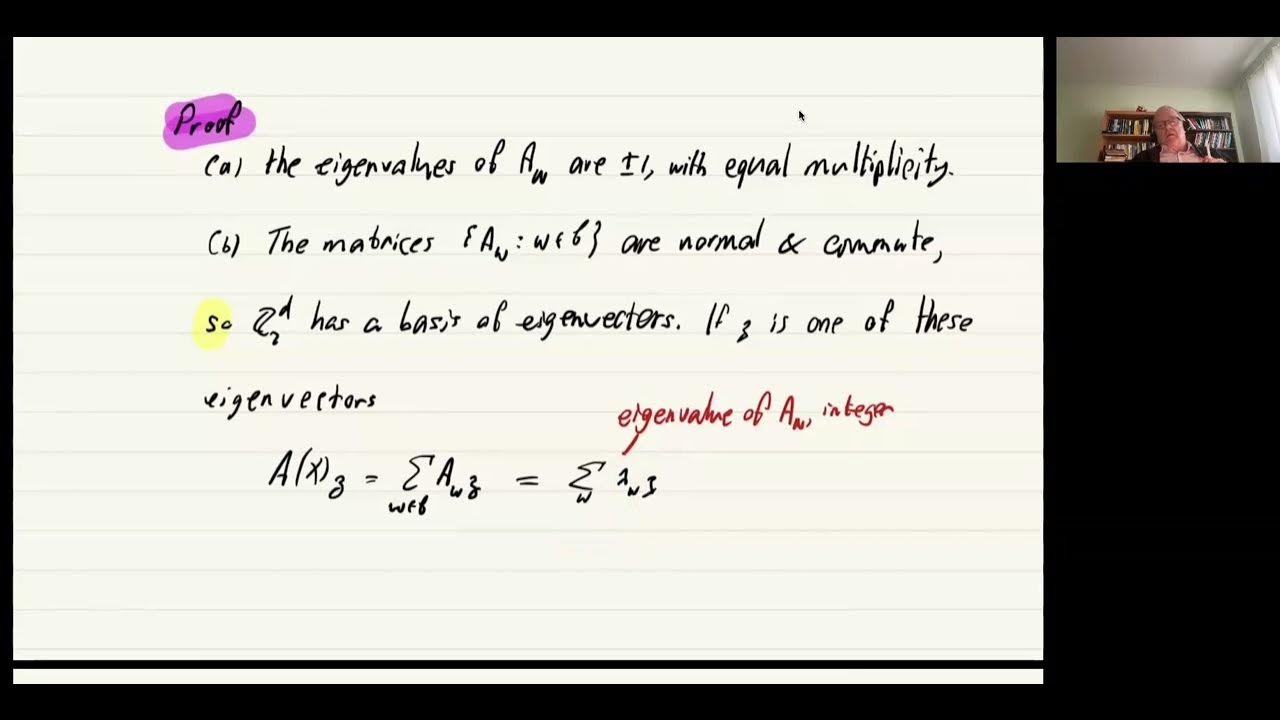 Proof
(a) the eigenvalues of A_w are ±1, with equal multiplicity.
(b) The matrices {A_w : w ∈ C} are normal & commute,
so Z_2^d has a basis of eigenvectors. If z is one of these
eigenvectors
eigenvalue of A_w, integer
A(X)z = Σ_{w∈C} A_w z = Σ_w λ_w z